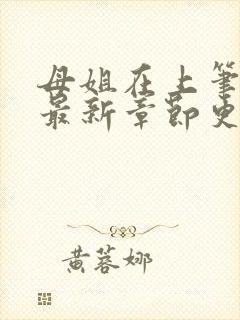 母姐在上笔
最新章节史
黄蓉娜